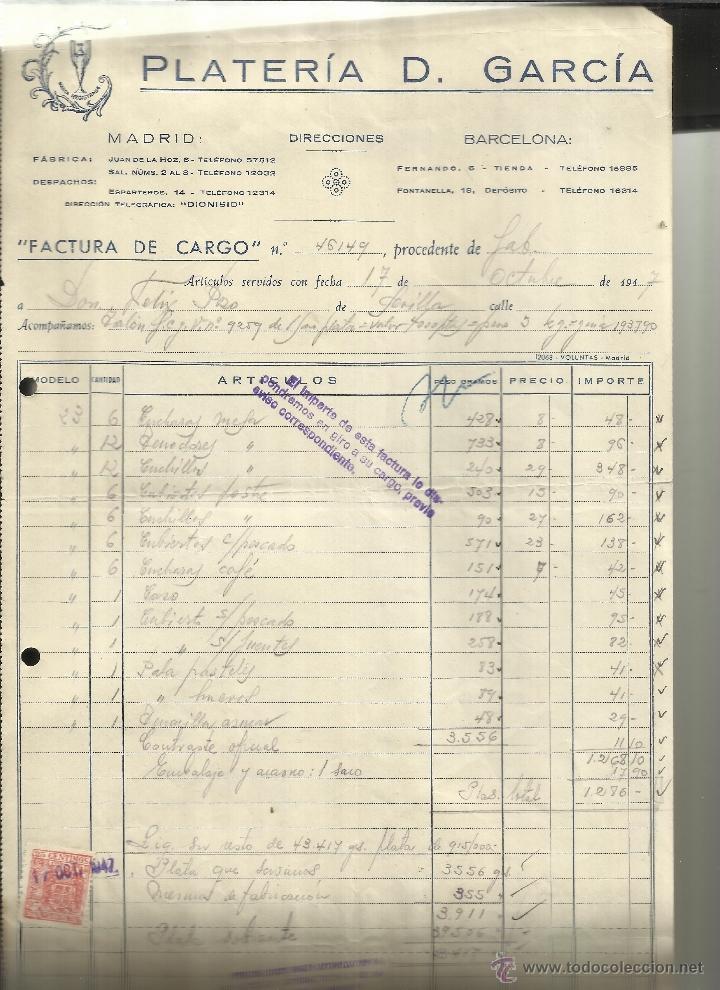 PLATERÍA D. GARCÍA
MADRID: DIRECCIONES BARCELONA:
FÁBRICA: JUAN DE LA HOZ, 6 - TELÉFONO 57812
DESPACHOS: SAL, NÚMS. 2 AL 8 - TELÉFONO 12032
ESPARTEROS, 14 - TELÉFONO 12314
DIRECCIÓN TELEGRÁFICA: "DIONISIO"
FERNANDO, 6 - TIENDA - TELÉFONO 16885
FONTANELLA, 18, DEPÓSITO - TELÉFONO 16314
"FACTURA DE CARGO" n.º 46149, procedente de Fab.
Artículos servidos con fecha 17 de Octubre de 1947
a Don Felix de Sevilla calle
Acompañamos: Talón 9259 de
12068 - VOLUNTAS - Madrid
MODELO CANTIDAD ARTICULOS PESO GRAMOS PRECIO IMPORTE
El importe de esta factura lo dis-
pondremos en giro a su cargo, previo
aviso correspondiente.
23 6 Cucharas mesa 428 8- 48-
" 12 Tenedores " 733 8- 96-
" 12 Cuchillos " 240 29- 348-
" 6 Cubiertos postre 503 15- 90-
" 6 Cuchillos " 90 27- 162-
" 6 Cubiertos c/pescado 571 23- 138-
" 6 Cucharas café 151 7- 42-
" 1 Cazo 174 45-
" 1 Cubierto s/pescado 188 95-
" 1 " s/fuentes 258 82-
" 1 Pala pasteles 83 41-
" 1 " huevos 89 41-
" 1 Tenacillas azucar 48 29-
Contraste oficial 3.556 11 10
1.268 10
Embalaje y acarreo: 1 saco 17 90
Ptas. total 1.286-
Lig. su resto de 43.417 gs. plata de 915/000:-
Plata que servimos 3556 gs.
Mermas de fabricación 355
3.911
Plata sobrante 39.506
25 CENTIMOS
17 OCT. 1947.
www.todocoleccion.net